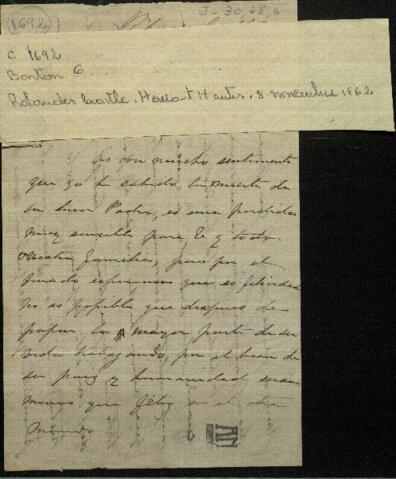 (1692)
J-30,28,6
C 1692
Bonton 6
Rolandes Castle, Hassart Hants, 8 novembre 1862
Es con mucho sentimiento
que yo he sabido la muerte de
su buen Padre, es una perdida
muy sensible para V. y toda
familia, pero por el
esperamos que es felicidad
no es posible que despues de
la mayor parte de su
vida trabajando, por el bien de
su pais y humanidad sea
menos que feliz en el otro
mundo